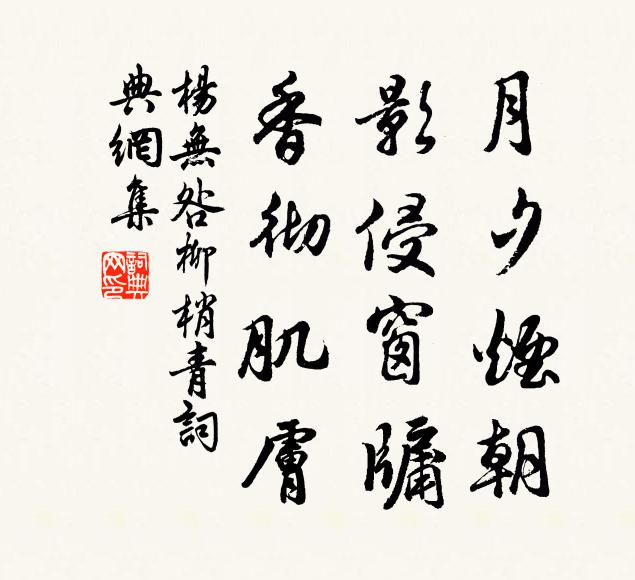 月夕煙朝
影侵窗牖
香彻肌膚
楊無咎柳梢青詞
典網集
詞典网印